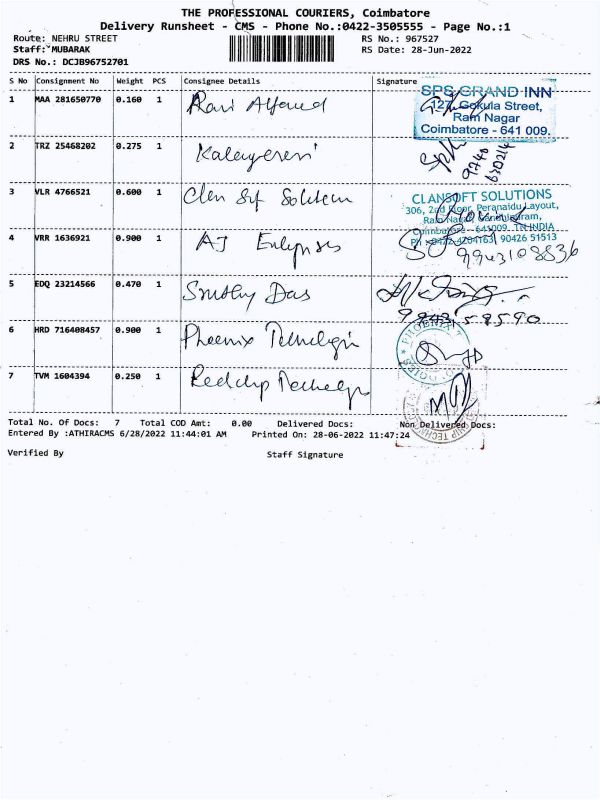 THE PROFESSIONAL COURIERS, Coimbatore
Delivery Runsheet - CMS - Phone No.:0422-3505555 - Page No.:1
Route: NEHRU STREET RS No.: 967527
Staff: MUBARAK RS Date: 28-Jun-2022
DRS No.: DCJB96752701
S No Consignment No Weight PCS Consignee Details Signature
1 MAA 281650770 0.160 1 Ravi
SPS GRAND INN
127, Gokula Street,
Ram Nagar
Coimbatore - 641 009.
2 TRZ 25468202 0.275 1
9740
630214
3 VLR 4766521 0.600 1 Clen Sof Solution
CLANSOFT SOLUTIONS
306, 2nd Floor, Peranaidu Layout,
Ram Nagar, Gandhipuram,
Coimbatore - 641009. TN INDIA
Ph : 0422 4204163, 90426 51513
4 VRR 1636921 0.900 1 AJ Enterprises
9943108836
5 EDQ 23214566 0.470 1 Das
6 HRD 716408457 0.900 1 Phoenix
PHOENIX
7 TVM 1604394 0.250 1 Redchip
Total No. Of Docs: 7 Total COD Amt: 0.00 Delivered Docs: Non Delivered Docs:
Entered By :ATHIRACMS 6/28/2022 11:44:01 AM Printed On: 28-06-2022 11:47:24
Verified By Staff Signature